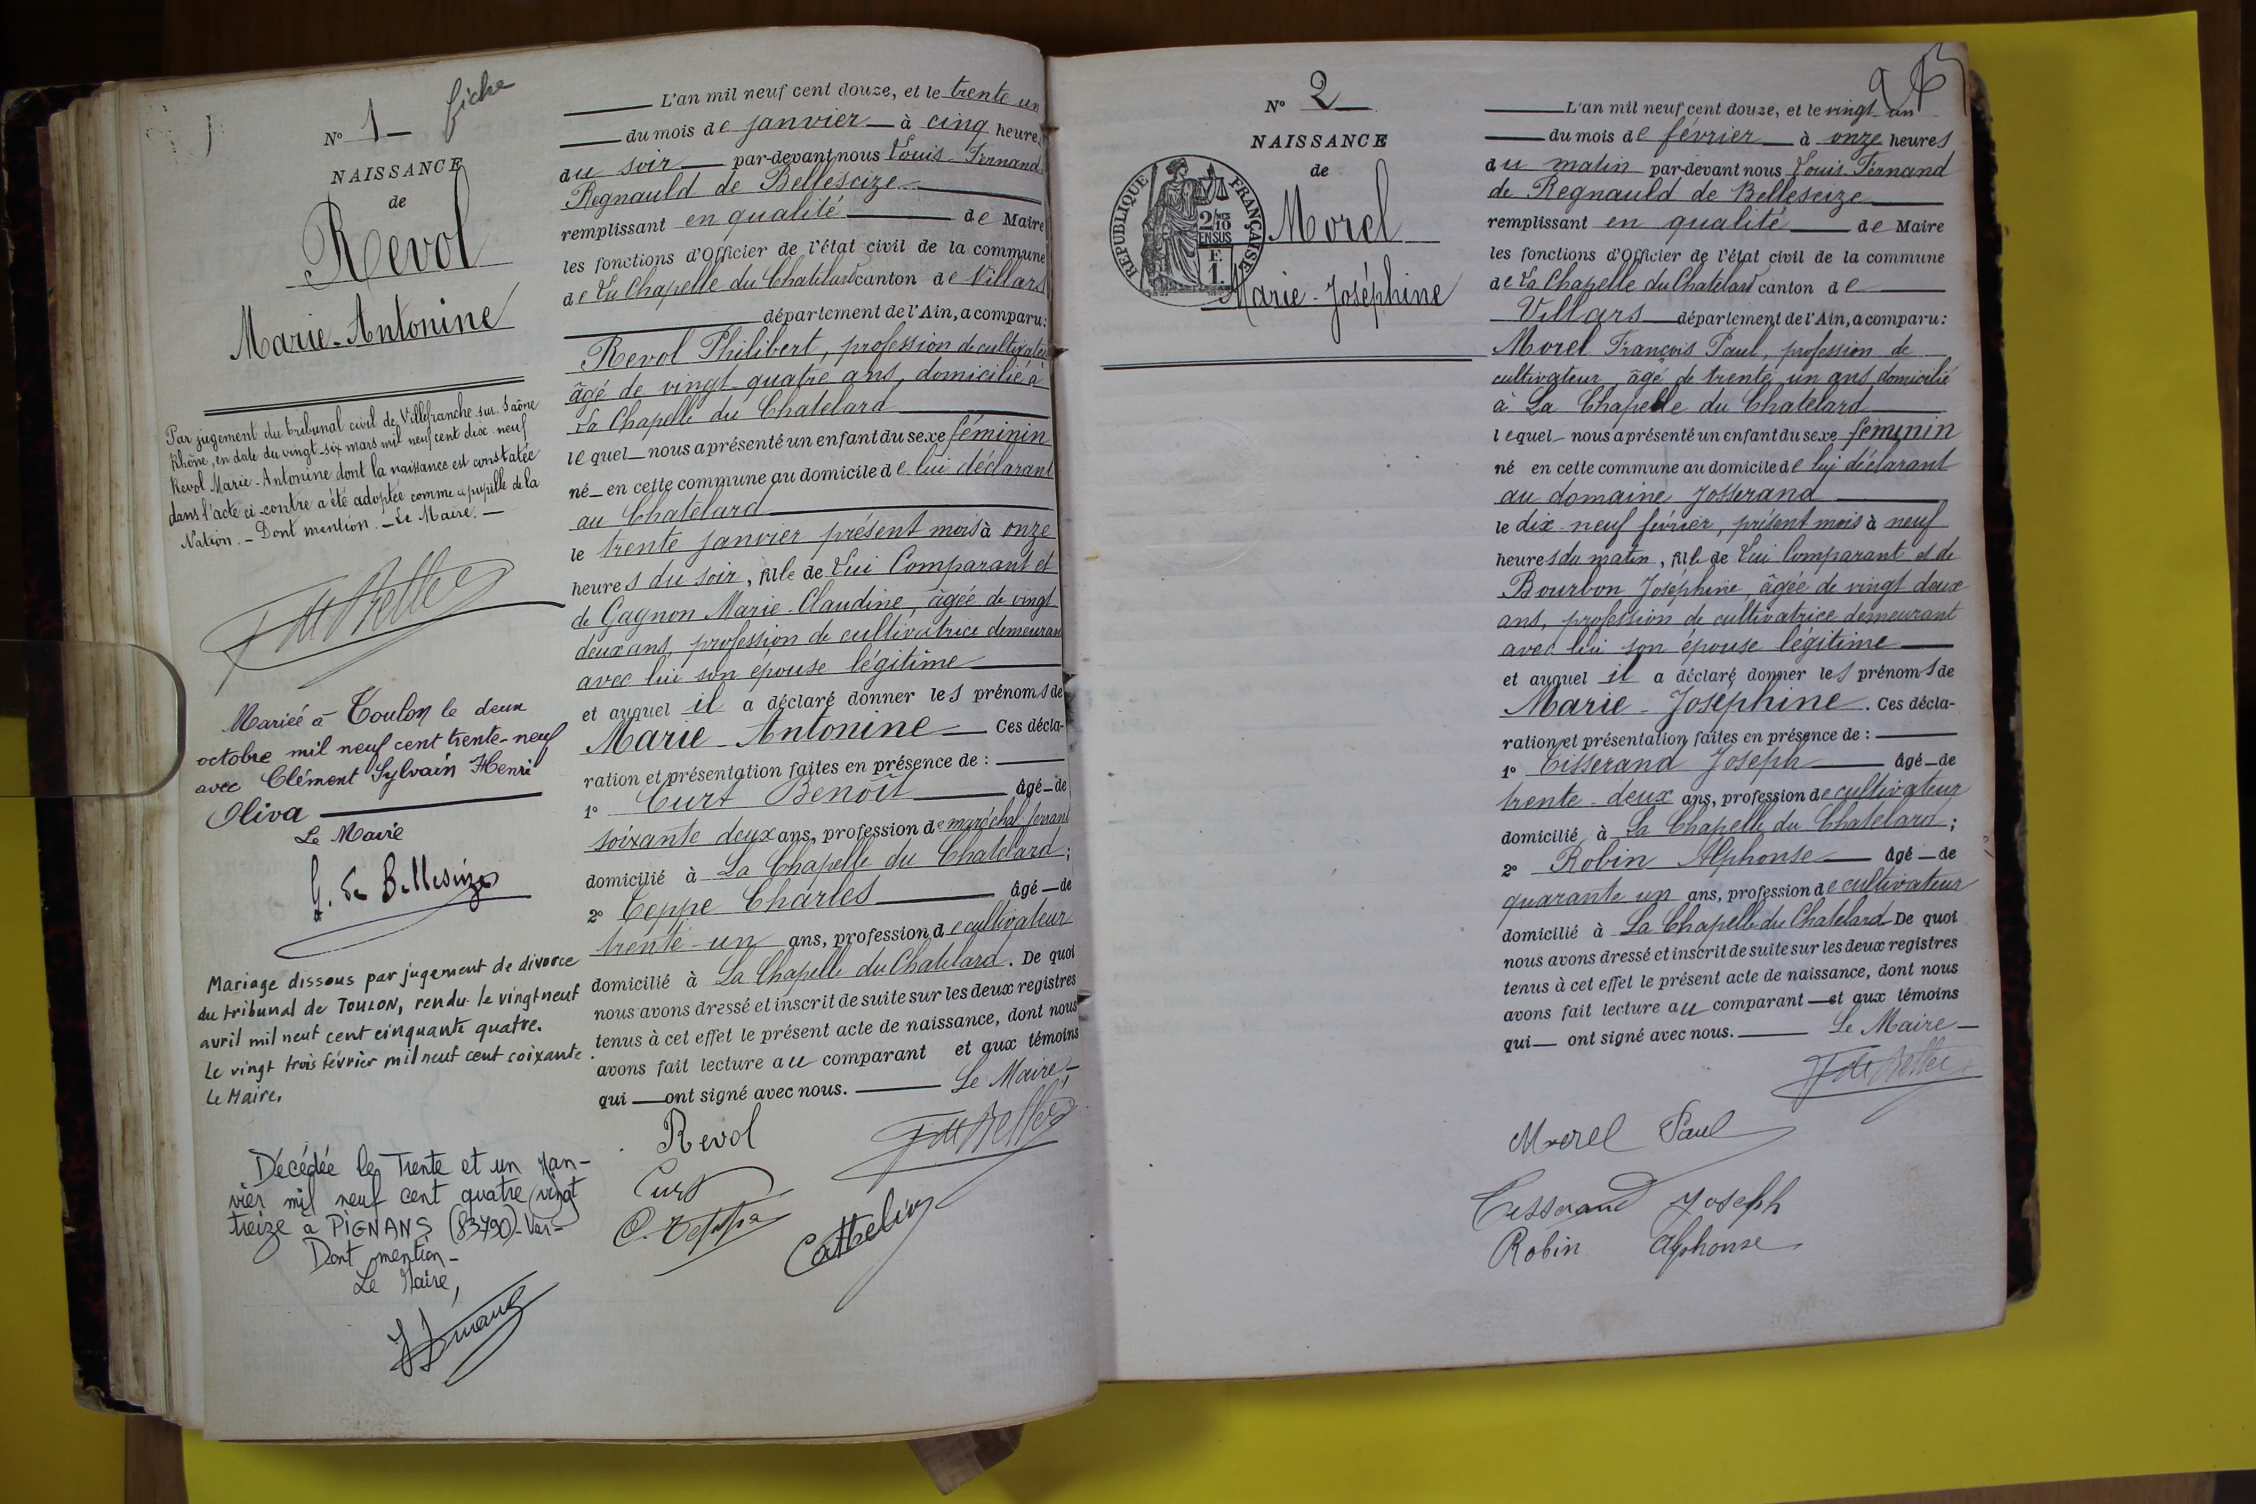 N° 1 fiche
NAISSANCE
de
Revol
Marie-Antonine
Par jugement du tribunal civil de Villefranche-sur-Saône
Rhône, en date du vingt-six mars mil neuf cent dix-neuf
Revol Marie-Antonine dont la naissance est constatée
dans l'acte ci-contre a été adoptée comme pupille de la
Nation. - Dont mention. - Le Maire. -
Mariée à Toulon le deux
octobre mil neuf cent trente-neuf
avec Clément Sylvain Henri
Oliva
Le Maire
G. de Bellescize
Mariage dissous par jugement de divorce
du tribunal de TOULON, rendu le vingt neuf
avril mil neuf cent cinquante quatre.
Le vingt trois février mil neuf cent soixante.
Le Maire,
Décédée le Trente et un Jan-
vier mil neuf cent quatre vingt
treize à PIGNANS (83790)-Var-
Dont mention-
Le Maire,
L'an mil neuf cent douze, et le trente un
du mois de janvier à cinq heures
du soir par-devant nous Louis-Fernand
Regnauld de Bellescize
remplissant en qualité de Maire
les fonctions d'Officier de l'état civil de la commune
de La Chapelle du Chatelard canton de Villars
département de l'Ain, a comparu:
Revol Philibert, profession de cultivateur
âgé de vingt-quatre ans, domicilié à
La Chapelle du Chatelard
lequel nous a présenté un enfant du sexe féminin
né en cette commune au domicile de lui déclarant
au Chatelard
le trente janvier présent mois à onze
heures du soir, fille de Lui Comparant et
de Gagnon Marie-Claudine, âgée de vingt
deux ans, profession de cultivatrice demeurant
avec lui son épouse légitime
et auquel il a déclaré donner les prénoms de
Marie-Antonine Ces décla-
ration et présentation faites en présence de :
1° Curt Benoît âgé de
soixante deux ans, profession de maréchal ferrant
domicilié à La Chapelle du Chatelard;
2° Teppe Charles âgé de
trente-un ans, profession de cultivateur
domicilié à La Chapelle du Chatelard. De quoi
nous avons dressé et inscrit de suite sur les deux registres
tenus à cet effet le présent acte de naissance, dont nous
avons fait lecture au comparant et aux témoins
qui ont signé avec nous. Le Maire
Revol
Curt
C. Teppe
Cathelin
N° 2
NAISSANCE
de
RÉPUBLIQUE FRANÇAISE
2/10
EN SUS
F.
1.
Morel
Marie-Joséphine
L'an mil neuf cent douze, et le vingt un
du mois de février à onze heures
du matin par-devant nous Louis Fernand
de Regnauld de Bellescize
remplissant en qualité de Maire
les fonctions d'Officier de l'état civil de la commune
de La Chapelle du Chatelard canton de
Villars département de l'Ain, a comparu:
Morel François Paul, profession de
cultivateur, âgé de trente un ans domicilié
à La Chapelle du Chatelard
lequel nous a présenté un enfant du sexe féminin
né en cette commune au domicile de lui déclarant
au domaine Josserand
le dix-neuf février, présent mois à neuf
heures du matin, fille de Lui Comparant et de
Bourbon Joséphine, âgée de vingt deux
ans, profession de cultivatrice demeurant
avec lui son épouse légitime
et auquel il a déclaré donner les prénoms de
Marie-Joséphine. Ces décla-
ration et présentation faites en présence de :
1° Tisserand Joseph âgé de
trente-deux ans, profession de cultivateur
domicilié à La Chapelle du Chatelard;
2° Robin Alphonse âgé de
quarante un ans, profession de cultivateur
domicilié à La Chapelle du Chatelard De quoi
nous avons dressé et inscrit de suite sur les deux registres
tenus à cet effet le présent acte de naissance, dont nous
avons fait lecture au comparant et aux témoins
qui ont signé avec nous. Le Maire
Morel Paul
Tisserand Joseph
Robin Alphonse